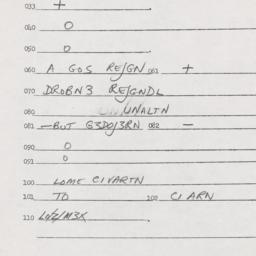 033 +
040 O
050 O
060 A GOS RE/GN 061 +
070 DROBN3 RE/GNDL
080 UNALTN
081 -BUT G3DO/3RN 082 -
090 O
091 O
100 LOME CIVARTN
101 TO 102 CI ARN
110